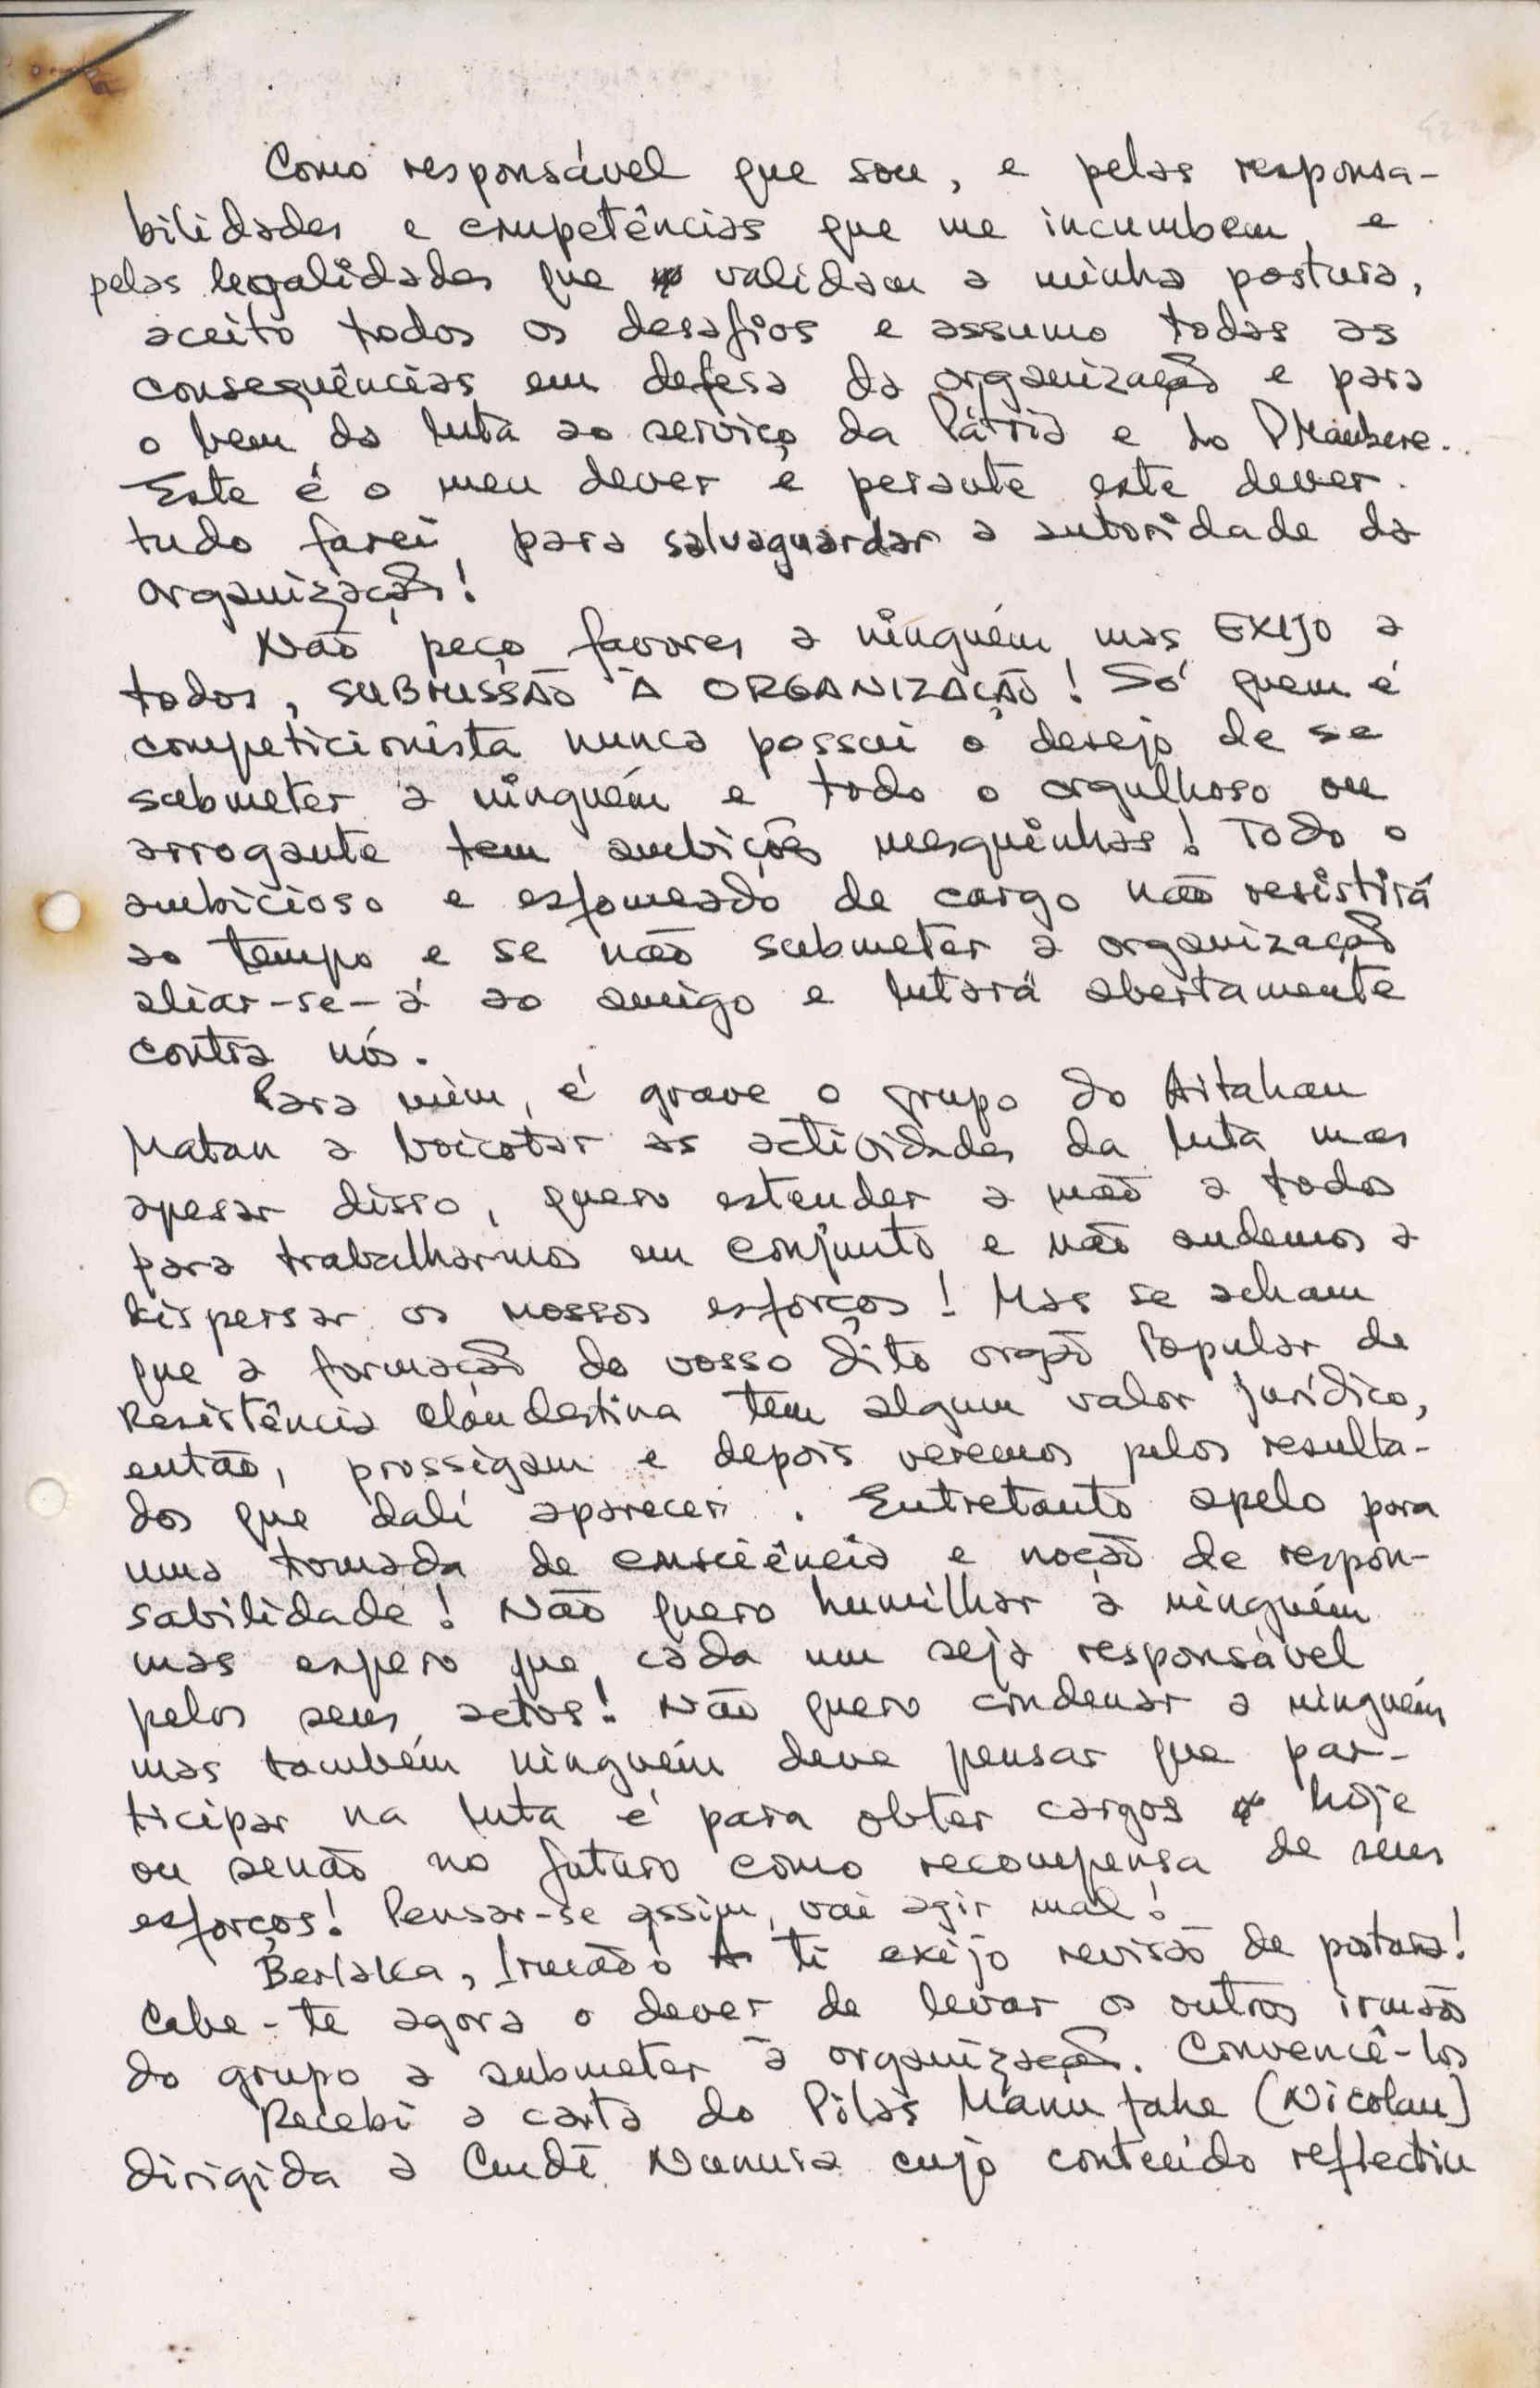 Como responsável que sou, e pelas responsa-
bilidades e competências que me incumbem, e
pelas legalidades que validam a minha postura,
aceito todos os desafios e assumo todas as
consequências em defesa da organização e para
o bem da luta ao serviço da Pátria e do PMaubere.
Este é o meu dever e perante este dever
tudo farei, para salvaguardar a autoridade da
organização!
Não peço favores a ninguém, mas EXIJO a
todos, SUBMISSÃO À ORGANIZAÇÃO! Só quem é
competicionista nunca possui o desejo de se
submeter a ninguém e todo o orgulhoso ou
arrogante tem ambições mesquinhas! Todo o
ambicioso e esfomeado de cargo não resistirá
ao tempo e se não submeter a organização
aliar-se-á ao amigo e lutará abertamente
contra nós.
Para mim, é grave o grupo do Aitahan
Matan a boicotar as actividades da luta mas
apesar disso, quero estender a mão a todos
para trabalharmos em conjunto e não andemos a
dispersar os nossos esforços! Mas se acham
que a formação do vosso dito orgão Popular de
Resistência Clandestina tem algum valor jurídico,
então, prossigam e depois veremos pelos resulta-
dos que dalí aparecer. Entretanto apelo para
uma tomada de consciência e noção de respon-
sabilidade! Não quero humilhar a ninguém
mas espero que cada um seja responsável
pelos seus actos! Não quero condenar a ninguém
mas também ninguém deve pensar que par-
ticipar na luta é para obter cargos hoje
ou senão no futuro como recompensa de seus
esforços! Pensar-se assim, vai agir mal!
Berlaka, Irmão! A ti exijo revisão de postura!
Cabe-te agora o dever de levar os outros irmãos
do grupo a submeter à organização. Convencê-los
Recebi a carta do Pilás Manu fahe (Nicolau)
dirigida a Cmdt Nunura cujo conteúdo reflectiu